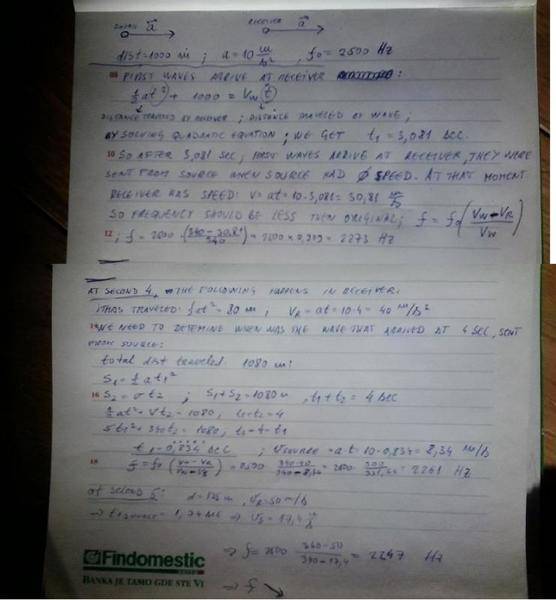 SOURCE a⃗ RECEIVER a⃗
dist=1000 m ; a=10 m/s² , f₀ = 2500 Hz
FIRST WAVES ARRIVE AT RECEIVER :
½at² + 1000 = Vw t
DISTANCE TRAVELED BY RECEIVER ; DISTANCE TRAVELED BY WAVE ;
BY SOLVING QUADRATIC EQUATION ; WE GET t₁ = 3,081 SEC.
10 SO AFTER 3,081 SEC, FIRST WAVES ARRIVE AT RECEIVER, THEY WERE
SENT FROM SOURCE WHEN SOURCE HAD Ø SPEED. AT THAT MOMENT
RECEIVER HAS SPEED: V = at = 10·3,081 = 30,81 m/s
SO FREQUENCY SHOULD BE LESS THEN ORIGINAL; f = f₀ (Vw-VR / Vw)
12 ; f = 2500 = 2500 × 0,909 = 2273 Hz
AT SECOND 4, THE FOLLOWING HAPPENS IN RECEIVER:
IT HAS TRAVELED: ½at² = 80 m ; VR = at = 10·4 = 40 m/s²
14 WE NEED TO DETEMINE WHEN WAS THE WAVE THAT ARRIVED AT 4 SEC, SENT
FROM SOURCE:
total dist traveled 1080 m:
S₁ = ½at₁²
16 S₂ = vt₂ ; S₁+S₂ = 1080 m , t₁+t₂ = 4 SEC
½at₁² + Vt₂ = 1080 ; t₁+t₂ = 4
5t₁² + 340t₂ = 1080 ;
t₁ = 0,834 SEC ; Vsource = a·t = 10·0,834 = 8,34 m/s
18 = 2261 Hz
at second 5: d = 125 m , VR = 50 m/s
⇒ f = 2500 = 2247 Hz
⇒ f ↘
Findomestic
BANKA
BANKA JE TAMO GDE STE VI